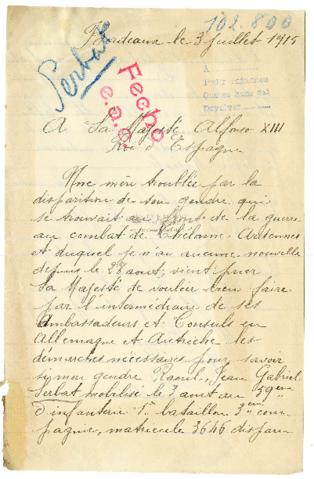 102.800
Bordeaux le 3 Juillet 1915
Serbat
Fecho
A Sa Majesté Alfonso XIII
Roi d'Espagne
Une mère troublée par la
disparition de son gendre qui
se trouvait au front de la guerre
au combat de Ardennes
et duquel je n'ai aucune nouvelle
depuis le 28 aout, vient prier
Sa Majesté de vouloir bien faire
par l'intermédiaire de ses
Ambassadeurs et Consuls en
Allemagne et Autriche les
démarches nécessaires pour savoir
si mon gendre Raoul, Jean Gabriel
Serbat mobilisé le 3 aout au 59eme
d'infanterie 1r bataillon 3eme com
pagnie, matricule 3646 disparu